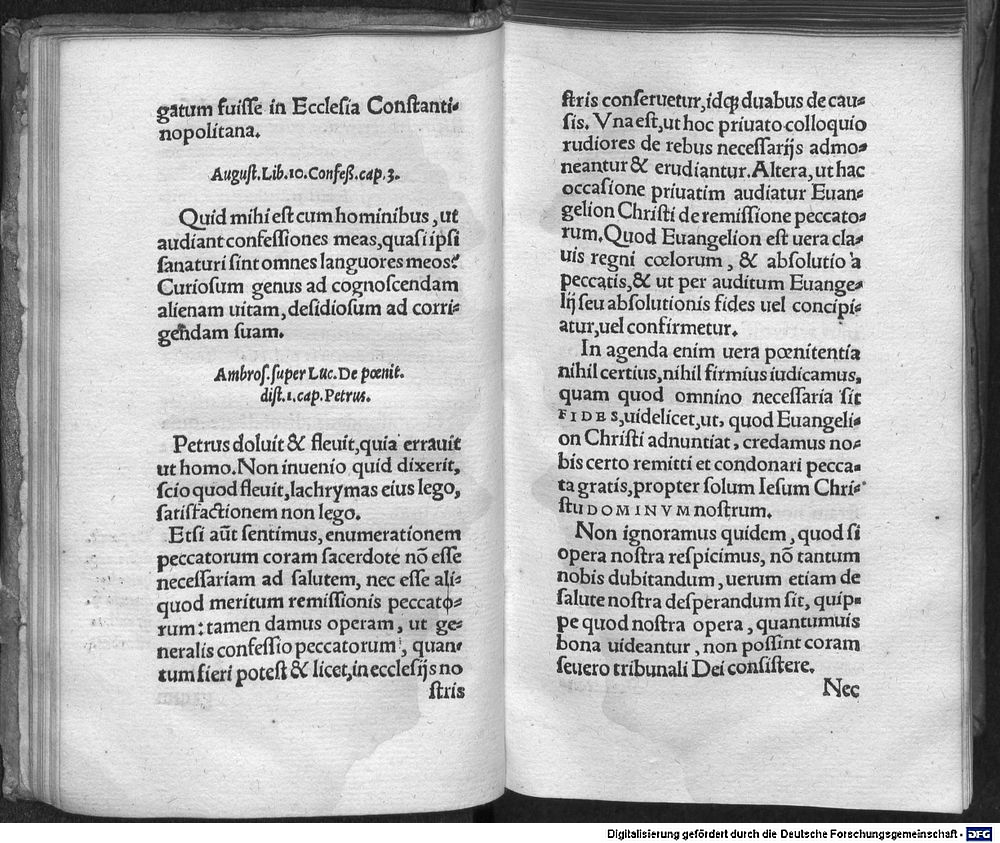 gatum fuisse in Ecclesia Constanti-
nopolitana.
August. Lib. 10. Confeß. cap. 3.
Quid mihi est cum hominibus, ut
audiant confessiones meas, quasi ipsi
sanaturi sint omnes languores meos?
Curiosum genus ad cognoscendam
alienam uitam, desidiosum ad corri-
gendam suam.
Ambros. super Luc. De pœnit.
dist. 1. cap. Petrus.
Petrus doluit & fleuit, quia errauit
ut homo. Non inuenio quid dixerit,
scio quod fleuit, lachrymas eius lego,
satisfactionem non lego.
Etsi aūt sentimus, enumerationem
peccatorum coram sacerdote nō esse
necessariam ad salutem, nec esse ali-
quod meritum remissionis peccato-
rum: tamen damus operam, ut ge-
neralis confessio peccatorum, quan-
tum fieri potest & licet, in ecclesijs no
stris
stris conseruetur, idqꝫ duabus de cau-
sis. Vna est, ut hoc priuato colloquio
rudiores de rebus necessarijs admo-
neantur & erudiantur. Altera, ut hac
occasione priuatim audiatur Euan-
gelion Christi de remissione peccato-
rum. Quod Euangelion est uera cla-
uis regni cœlorum, & absolutio à
peccatis, & ut per auditum Euange-
lij seu absolutionis fides uel concipi-
atur, uel confirmetur.
In agenda enim uera pœnitentia
nihil certius, nihil firmius iudicamus,
quam quod omnino necessaria sit
FIDES, uidelicet, ut, quod Euangeli-
on Christi adnuntiat, credamus no-
bis certo remitti et condonari pecca-
ta gratis, propter solum Iesum Chri-
stu DOMINVM nostrum.
Non ignoramus quidem, quod si
opera nostra respicimus, nō tantum
nobis dubitandum, uerum etiam de
salute nostra desperandum sit, quip-
pe quod nostra opera, quantumuis
bona uideantur, non possint coram
seuero tribunali Dei consistere.
Nec
Digitalisierung gefördert durch die Deutsche Forschungsgemeinschaft - DFG